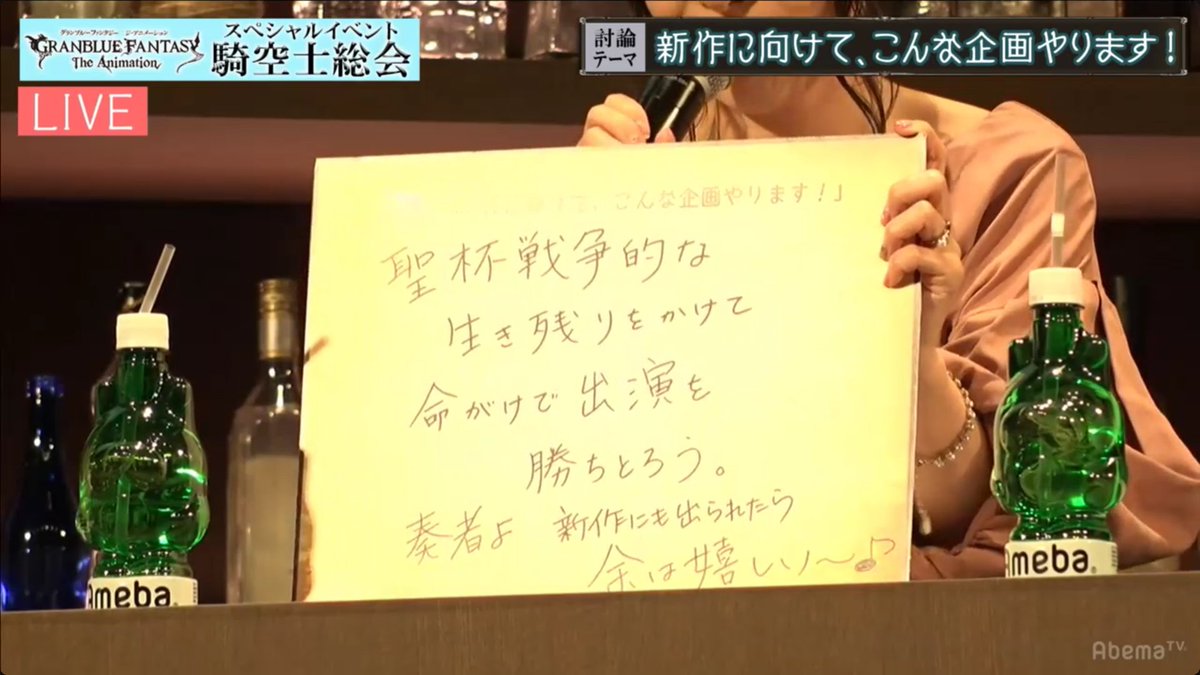 グランブルーファンタジー ジ・アニメーション
GRANBLUE FANTASY
The Animation
スペシャルイベント
騎空士総会
LIVE
討論
テーマ
新作に向けて、こんな企画やります！
こんな企画やります！」
聖杯戦争的な
生き残りをかけて
命がけで出演を
勝ちとろう。
奏者よ 新作にも出られたら
余は嬉しいぞ〜♪
Ameba
Ameba
AbemaTV